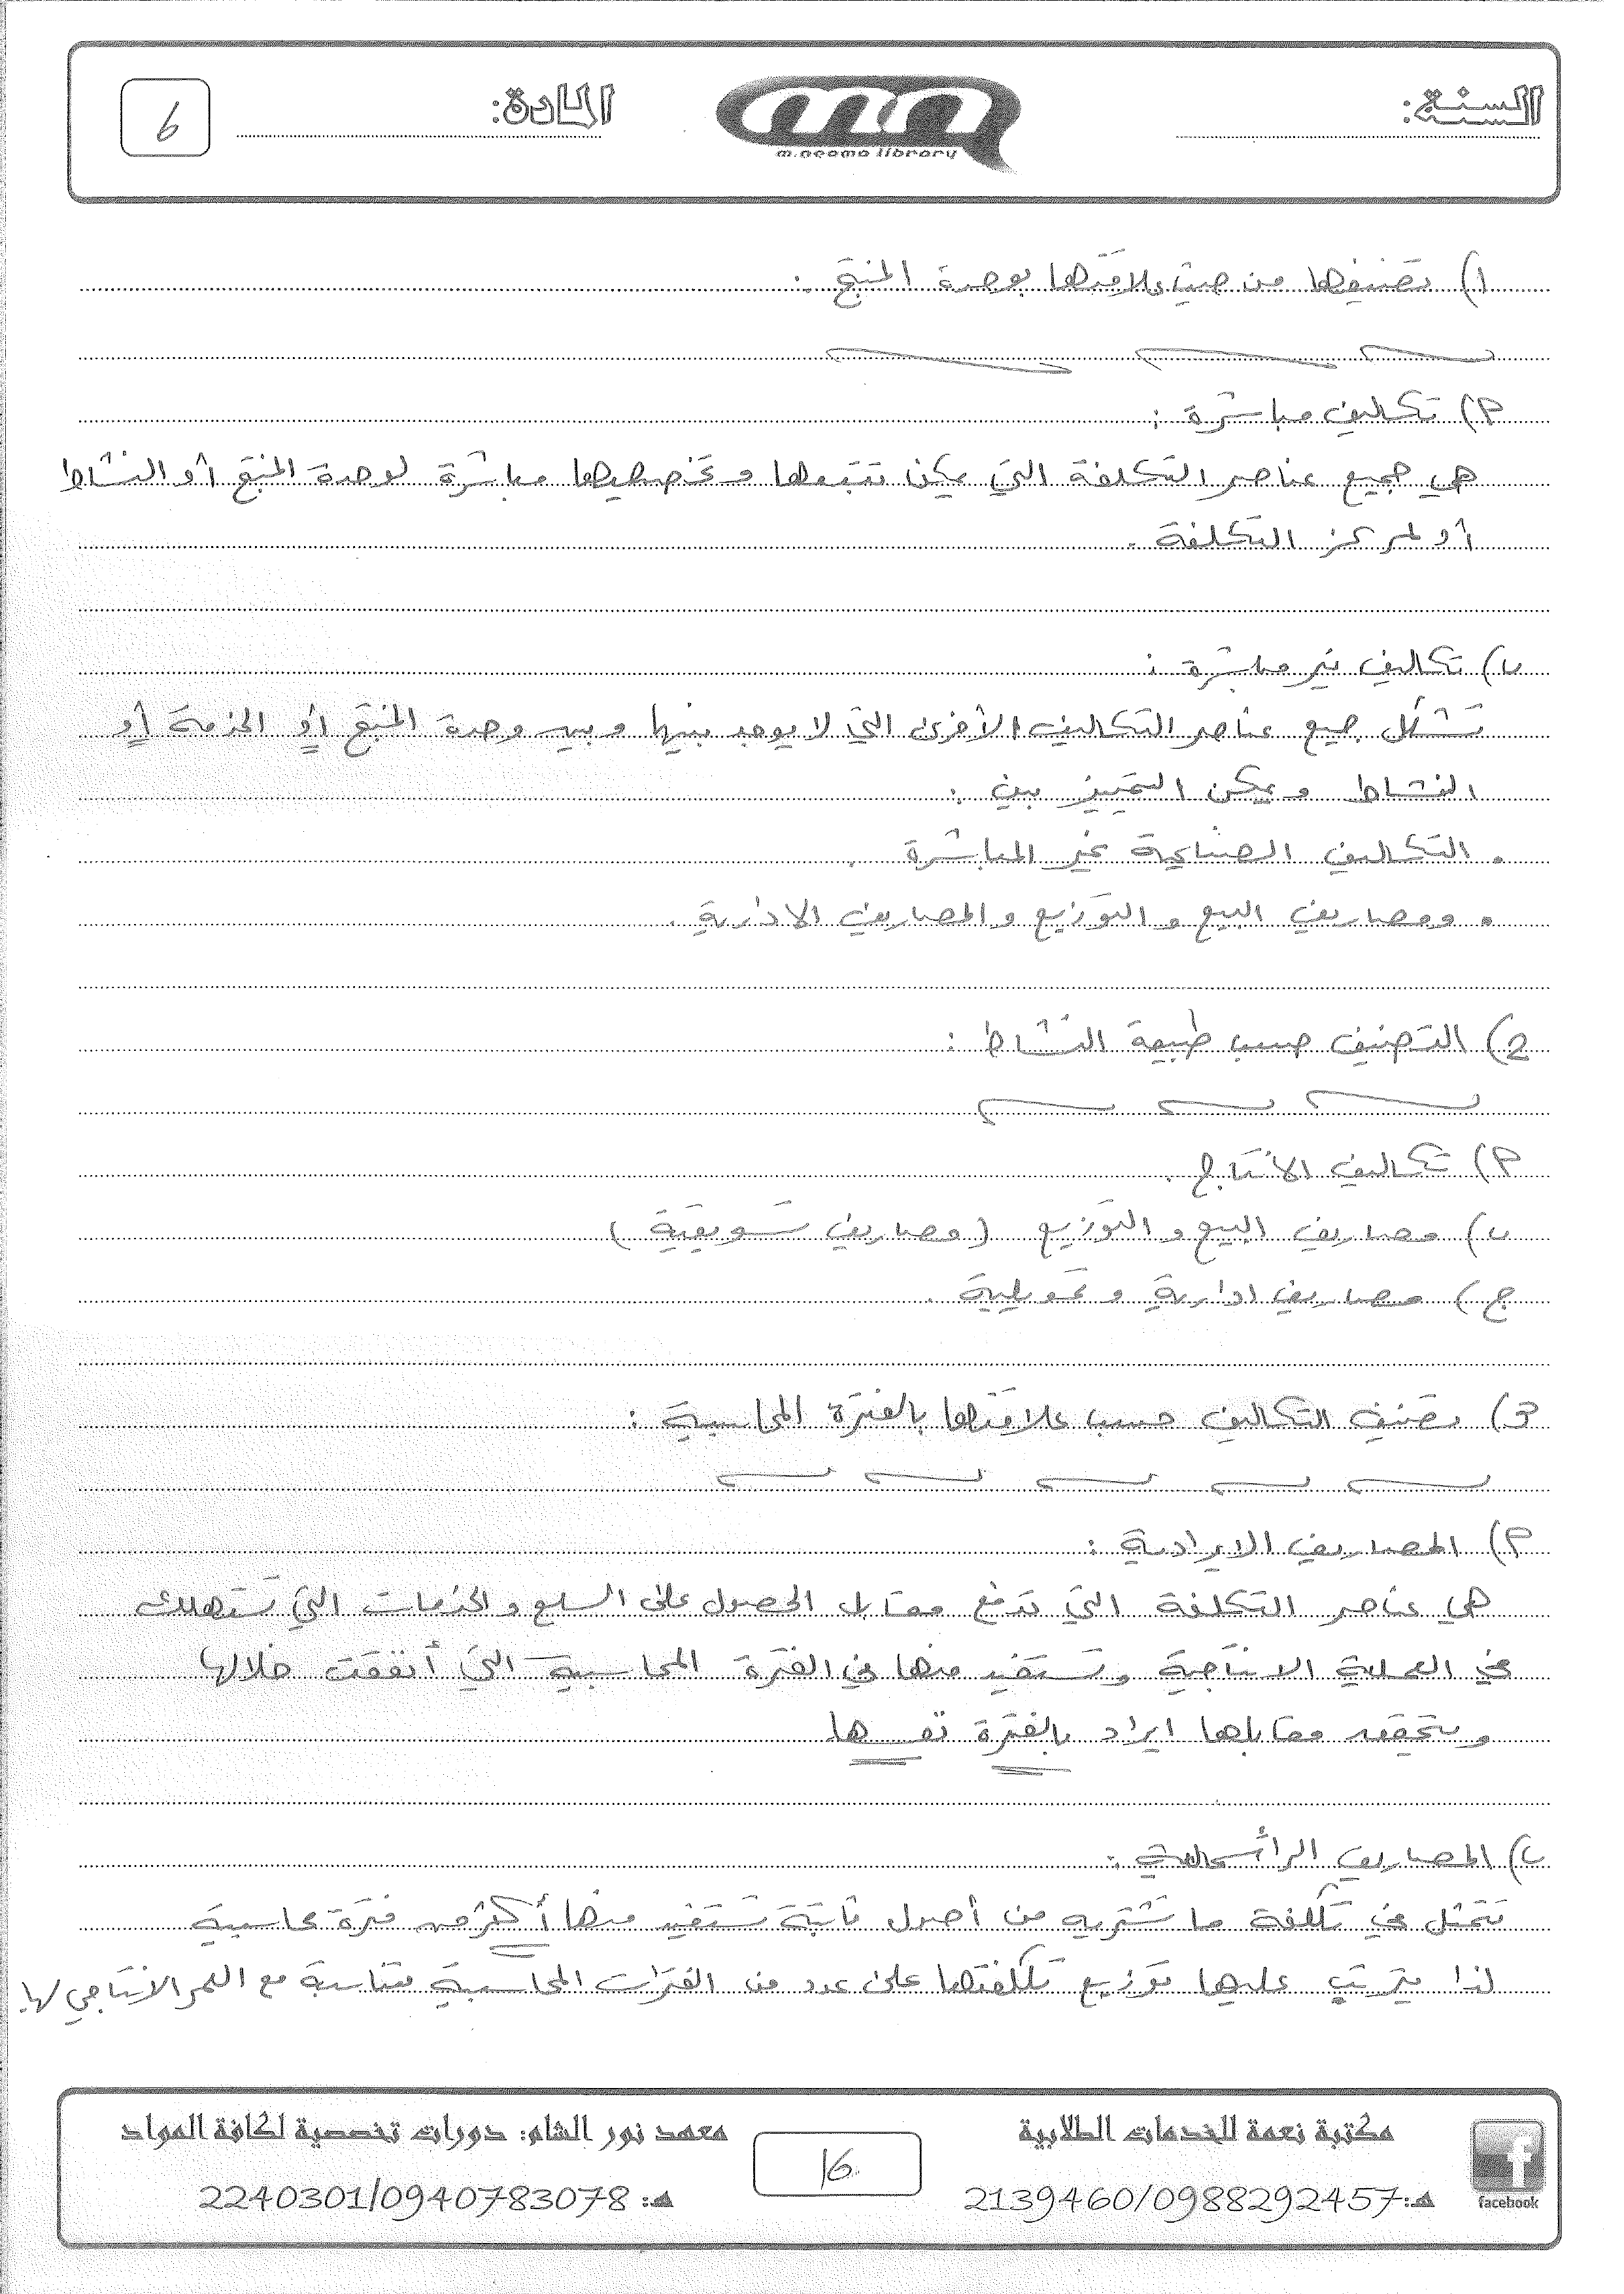 السنة:
m.neama library
المادة:
6
1) تصنيفها من حيث علاقتها بوحدة المنتج :
م) تكاليف مباشرة :
هي جميع عناصر التكلفة التي يمكن تتبعها وتخصيصها مباشرة لوحدة المنتج أو النشاط
أو لمركز التكلفة .
ب) تكاليف غير مباشرة :
تشكل جميع عناصر التكاليف الأخرى التي لا يوجد بينها وبين وحدة المنتج أو الخدمة أو
النشاط ويمكن التمييز بين :
. التكاليف الصناعية غير المباشرة .
. ومصاريف البيع والتوزيع والمصاريف الادارية .
2) التصنيف حسب طبيعة النشاط :
م) تكاليف الانتاج .
ب) مصاريف البيع والتوزيع (مصاريف تسويقية)
ج) مصاريف ادارية وتمويلية .
3) تصنيف التكاليف حسب علاقتها بالفترة المحاسبية :
م) المصاريف الايرادية :
هي عناصر التكلفة التي تدفع مقابل الحصول على السلع والخدمات التي تستهلك
في العملية الانتاجية وتستفيد منها في الفترة المحاسبية التي أنفقت خلالها
ويتحقق مقابلها ايراد بالفترة نفسها
ب) المصاريف الرأسمالية :
تتمثل في تكلفة ما تشتريه من أصول ثابتة تستفيد منها أكثر من فترة محاسبية
لذا يترتب عليها توزيع تكلفتها على عدد من الفترات المحاسبية متناسبة مع العمر الانتاجي لها.
مكتبة نعمة للخدمات الطلابية
هـ: 2139460/0988292457
facebook
16
معهد نور الشام: دورات تخصصية لكافة المواد
هـ: 2240301/0940783078